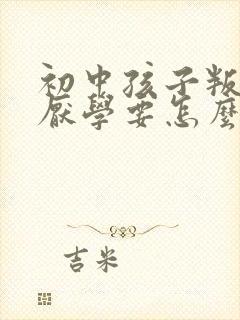 初中孩子叛
厭學要怎麼
吉米